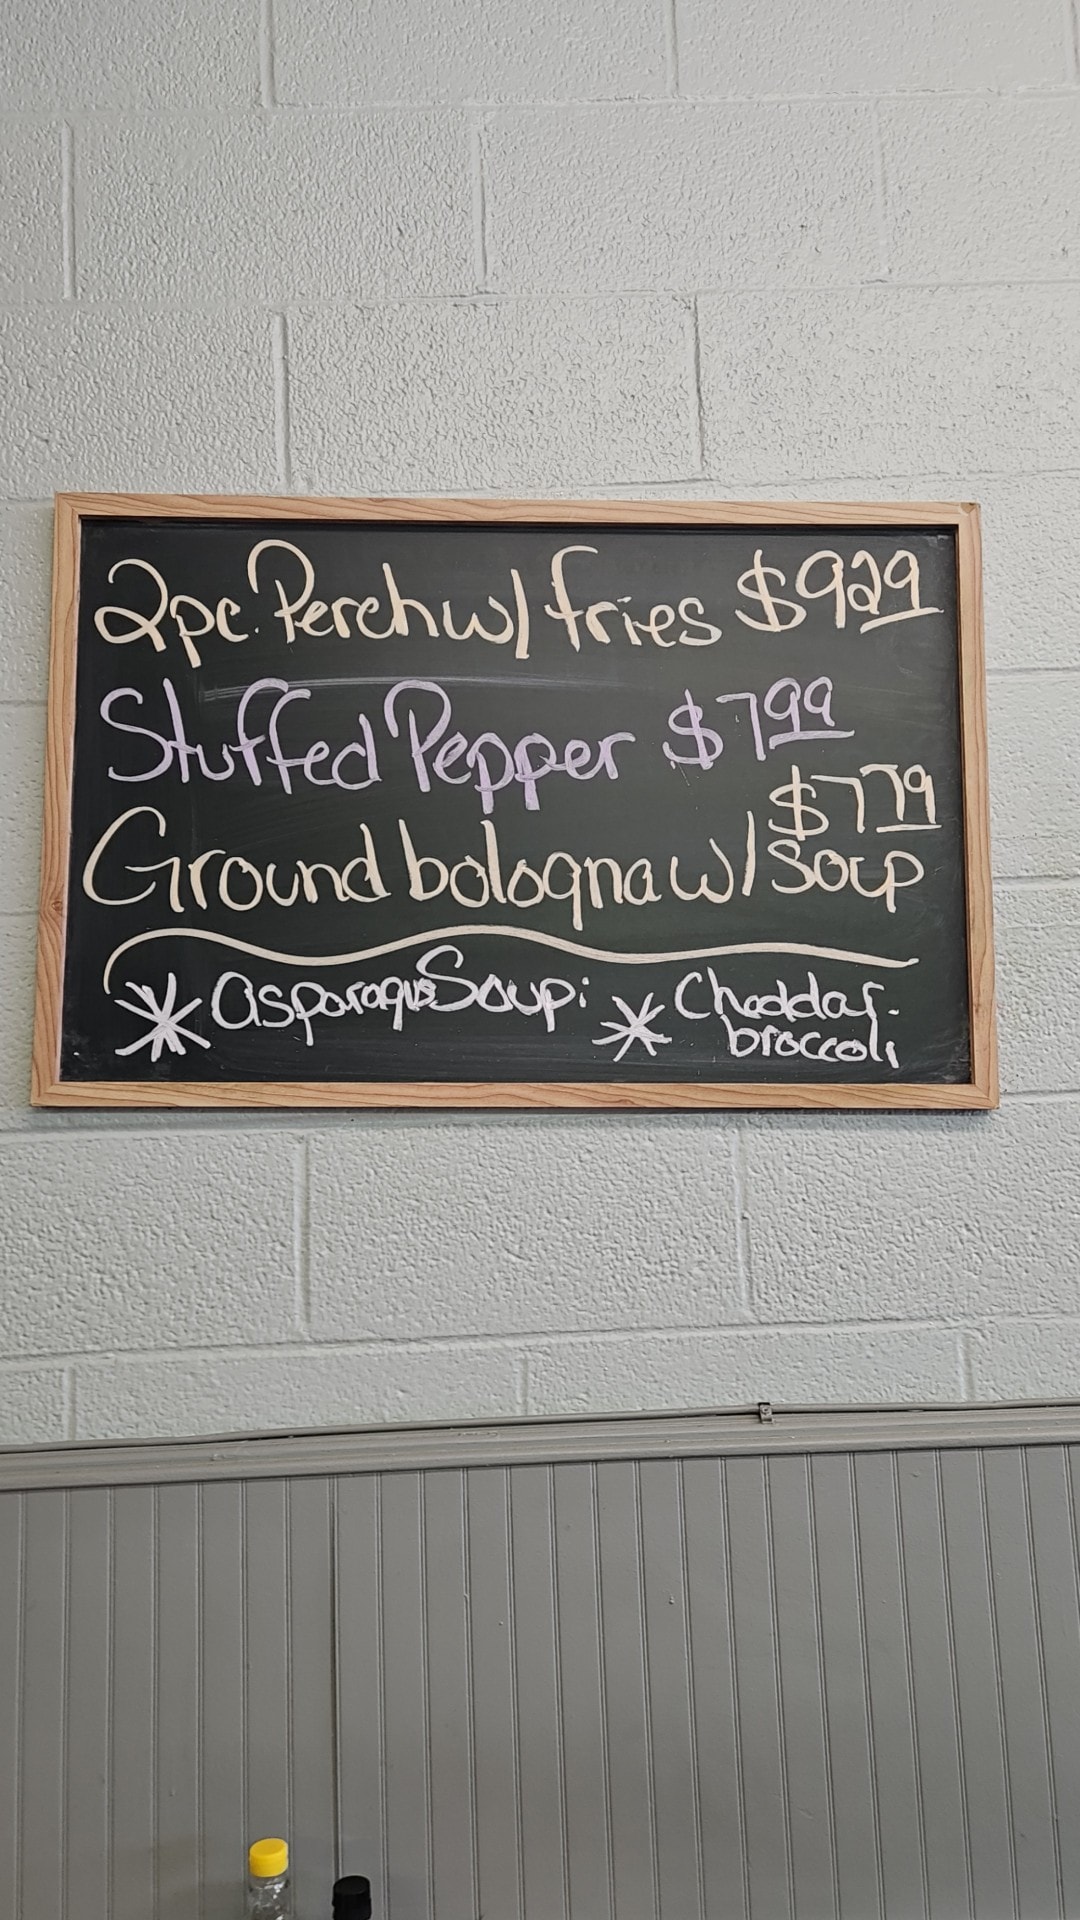 2pc. Perch w/ fries $9.29
Stuffed Pepper $7.99
$7.79
Ground bologna w/ soup
* asparagus Soup: * Cheddar.
broccoli